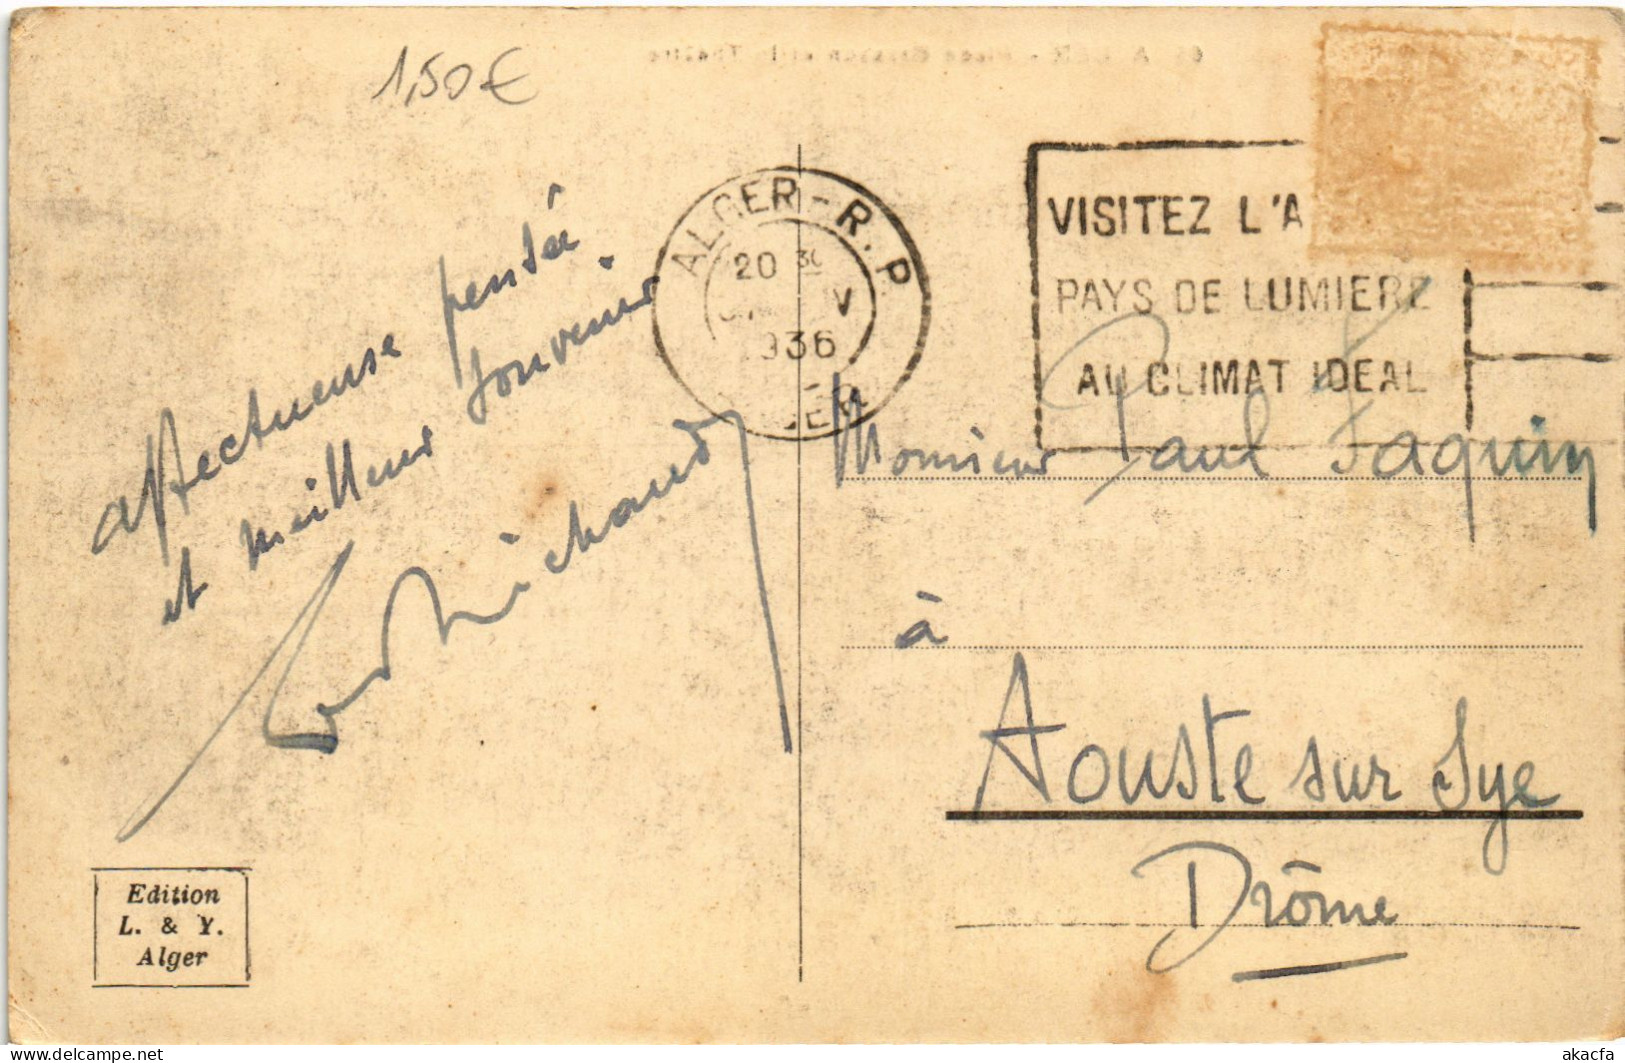 1,50€
ALGER-R.P
20 30
V
1936
VISITEZ L'A
PAYS DE LUMIERE
AU CLIMAT IDEAL
affectueuse pensée
et meilleur souvenir
Michaud
Monsieur Paul Faquin
à
Aouste sur Sye
Drôme
Edition
L. & Y.
Alger
akacfa